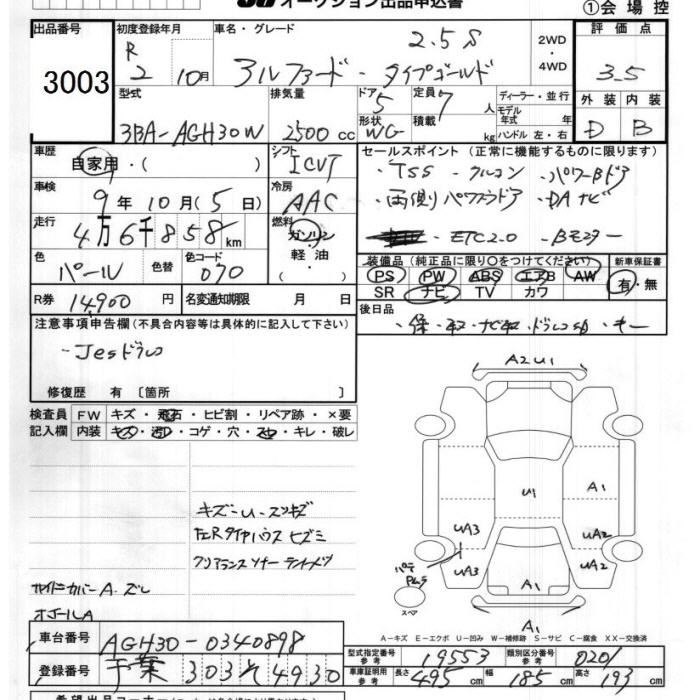 オークション出品申込書
①会場控
出品番号
3003
初度登録年月
R 2 10月
車名・グレード
2.5S
アルファード・タイプゴールド
2WD
・
4WD
評価点
3.5
外装 内装
D B
型式
3BA-AGH30W
排気量
2500 cc
ドア
5
形状
WG
定員
7 人
積載
kg
ディーラー・並行
モデル
年式 年
ハンドル 左・右
車歴
自家用・( )
シフト
ICVT
車検
9年10月(5日)
冷房
AAC
走行
4万6千858km
燃料
ガソリン
・
軽油
( )
色
パール
色替
色コード
070
R券
14,900 円
名変通知期限 月 日
セールスポイント (正常に機能するものに限ります)
・TSS ・クルコン ・パワーBドア
・両側パワスラドア ・DAナビ
・ETC2.0 ・Bモニター
装備品 (純正品に限り○をつけてください)
PS PW ABS エアB AW
SR ナビ TV カワ
新車保証書
有・無
後日品
・保・取・ナビ取・ドラレコSD・キー
注意事項申告欄 (不具合内容等は具体的に記入して下さい)
・Jesドラレコ
修復歴 有 〔箇所 〕
検査員 FW キズ・飛石・ヒビ割・リペア跡・×要
記入欄 内装 キズ・汚れ・コゲ・穴・スレ・キレ・破レ
キズ-U-スリキズ
左Rタイヤハウス ヒズミ
クリアランスソナー
サイドカバーA. ズレ
A2U1
U1
A1
UA3
UA2
UA3
UA2
A1
A1
スペア
A-キズ E-エクボ U-凹み W-補修跡 S-サビ C-腐食 XX-交換済
車台番号
AGH30-0340898
登録番号
千葉 303 そ 4930
型式指定番号
参考
19553
類別区分番号
参考
0201
車庫証明用
参考
長さ 495 cm 幅 185 cm 高さ 193 cm